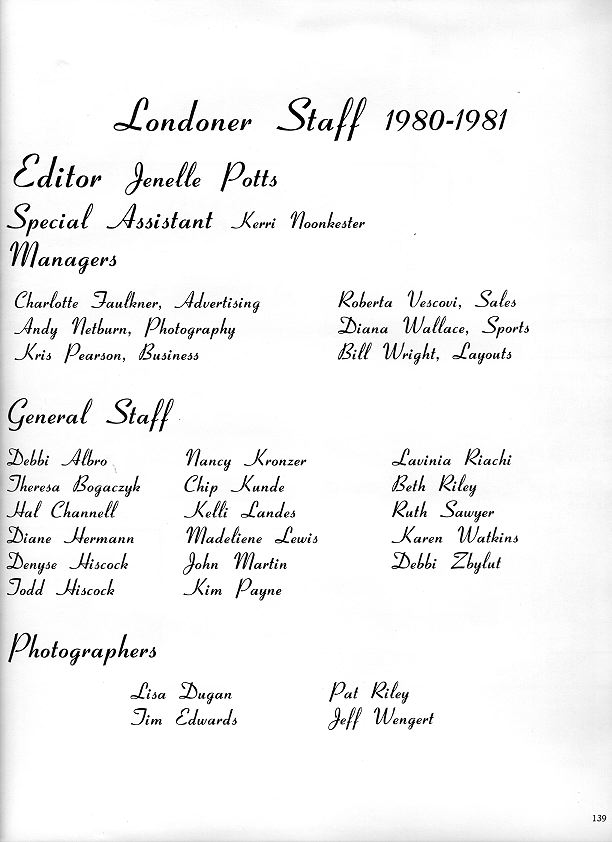 Londoner Staff 1980-1981
Editor Jenelle Potts
Special Assistant Kerri Noonkester
Managers
Charlotte Faulkner, Advertising Roberta Vescovi, Sales
Andy Netburn, Photography Diana Wallace, Sports
Kris Pearson, Business Bill Wright, Layouts
General Staff
Debbi Albro Nancy Kronzer Lavinia Riachi
Theresa Bogaczyk Chip Kunde Beth Riley
Hal Channell Kelli Landes Ruth Sawyer
Diane Hermann Madeliene Lewis Karen Watkins
Denyse Hiscock John Martin Debbi Zbylut
Todd Hiscock Kim Payne
Photographers
Lisa Dugan Pat Riley
Tim Edwards Jeff Wengert
139